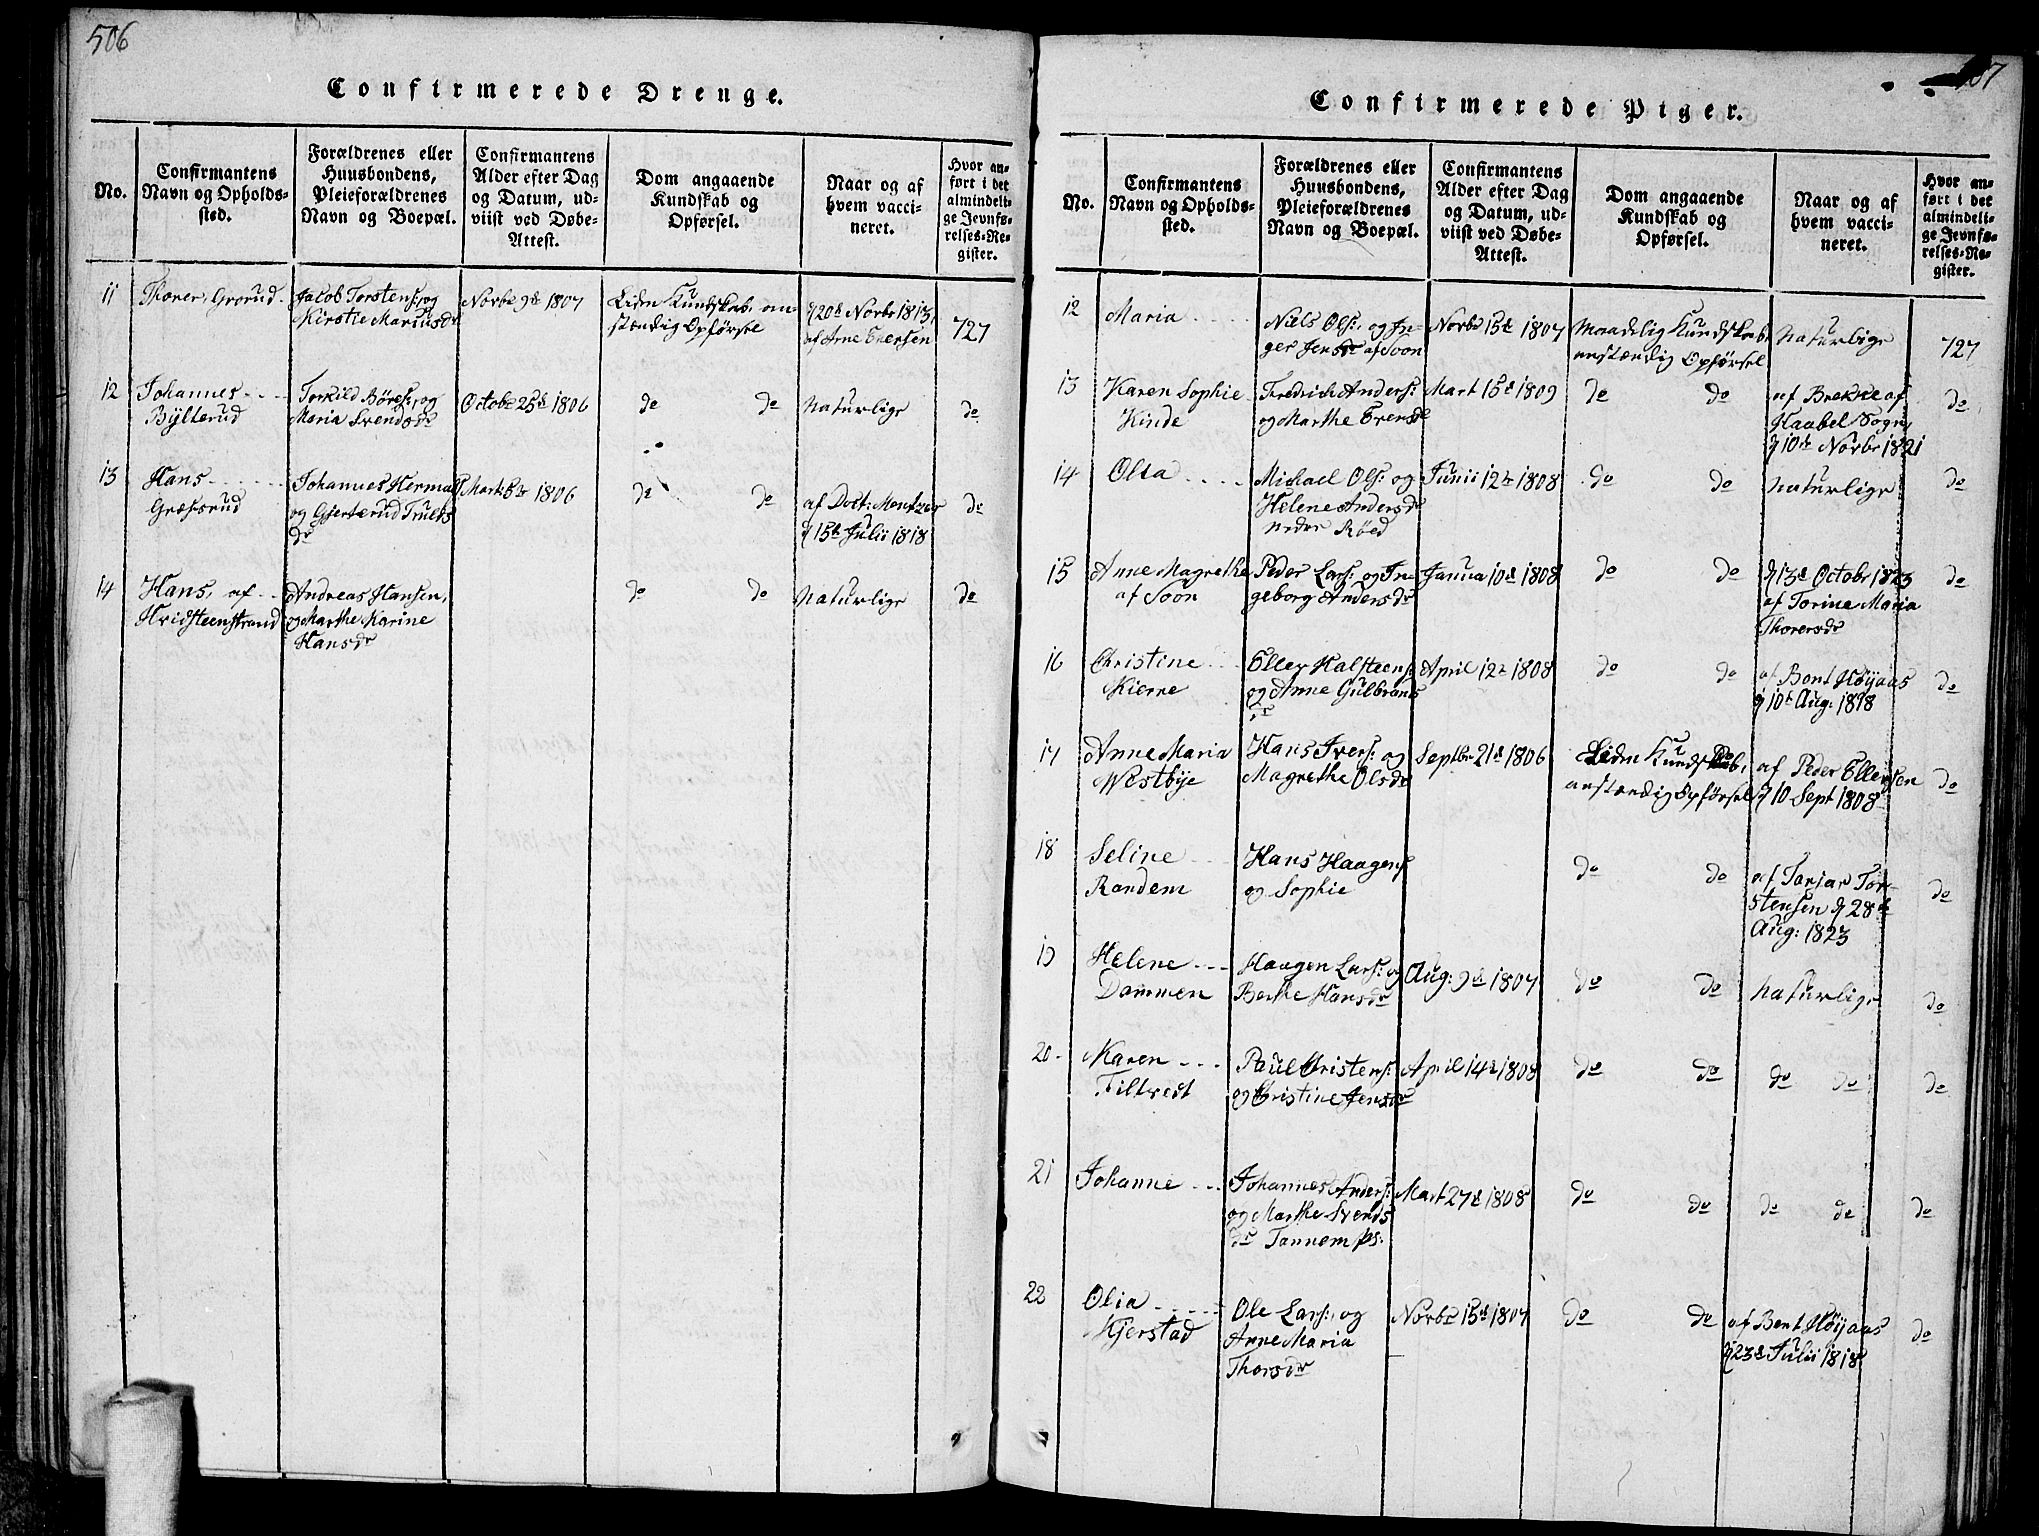 506
Confirmerede Drenge.
No.
Confirmantens
Navn og Opholds-
sted.
Forældrenes eller
Huusbondens,
Pleieforældrenes
Navn og Boepæl.
Confirmantens
Alder efter Dag
og Datum, ud-
viist ved Døbe-
Attest.
Dom angaaende
Kundskab og
Opførsel.
Naar og af
hvem vacci-
neret.
Hvor an-
ført i det
almindeli-
ge Jevnfø-
relses-Re-
gister.
11
Thorer, Grorud
Jacob Torstens: og
Kirstie Mariusdr
Novbr 9de 1807
Liden Kundskab, an-
stændig Opførsel
d 20de Novbr 1813,
af Arne Evensen
727
12
Johannes
Bylterud
Torkild Børes: og
Maria Svendsdr
Octobr 25de 1806
do do
Naturlige
do
13
Hans
Græsrud
Johannes Herma
og Gjerterud Truls
dr
Mart 8de 1806
do do
af Doct: Mentzer
d 15de Julii 1818
do
14
Hans, af
Hvidsteenstrand
Andreas Hansen,
og Marthe Karine
Hansdr
do do
Naturlige
do
107
Confirmerede Piger.
No.
Confirmantens
Navn og Opholds-
sted.
Forældrenes eller
Huusbondens,
Pleieforældrenes
Navn og Boepæl.
Confirmantens
Alder efter Dag
og Datum, ud-
viist ved Døbe-
Attest.
Dom angaaende
Kundskab og
Opførsel.
Naar og af
hvem vacci-
neret.
Hvor an-
ført i det
almindeli-
ge Jevnfø-
relses-Re-
gister.
12
Maria
Niels Ols: og In-
ger Jensdr af Soon
Novbr 15de 1807
Maadelig Kundskab,
anstændig Opførsel
Naturlige
727
13
Karen Sophie
Kinde
Fredrich Anders:
og Marthe Evensdr
Mart 15de 1809
do do
af Brekke af
Haabel Sogn,
d 10de Novbr 1821
do
14
Olea
Michael Ols: og
Helene Andersdr
nedre Røed
Junii 12te 1808
do do
Naturlige
do
15
Anne Magrethe
af Soon
Peder Lars: og In-
geborg Andersdr
Janua 10de 1808
do do
d 13de Octobr 1823
af Torine Maria
Thorersdr
do
16
Christine
Kierre
Eller Halsteens:
og Anne Gulbrands
dr
April 12te 1808
do do
af Bent Høyaas
d 10de Aug: 1818
do
17
Anne Maria
Westbye
Hans Ivers: og
Magrethe Olsdr
Septbr 21de 1806
Liden Kundskab,
anstændig Opførsel
af Peder Ellensen
d 10 Sept 1808
do
18
Seline
Randem
Hans Haagens
og Sophie
do do
af Tarjar Tor-
stensen d 28de
Aug: 1823
do
19
Helene
Dammen
Haagen Lars: og
Berthe Hansdr
Aug: 9de 1807
do do
Naturlige
do
20
Karen
Filtvedt
Paul Cristens:
og Cristine Jensdr
April 14de 1808
do do
do do
do
21
Johanne
Johannes Anders:
og Marthe Svends
dr Tannem ps:
Mart 27de 1808
do do
do do
do
22
Olia
Kjerstad
Ole Lars:, og
Anne Maria
Thorsdr
Novbr 15de 1807
do do
af Bent Høyaas
d 23de Julii 1818
do